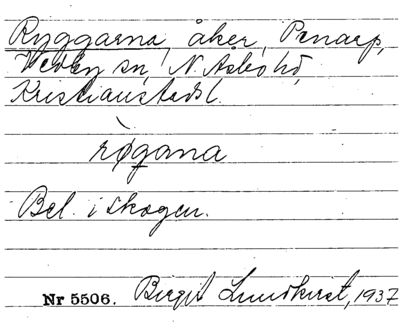 Ryggarna, åker, Penarp,
Vedby sn, N. Åsbo hd,
Kristianstads l.
rø̀gana
Bel. i skogen.
Nr 5506. Birgit Lundkvist, 1937